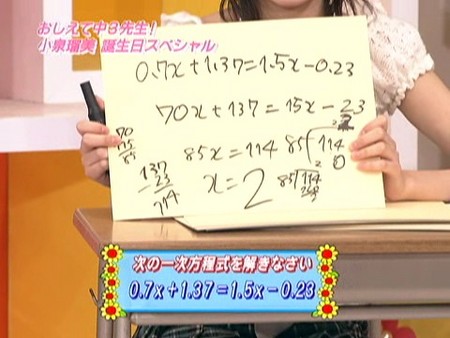 おしえて中3先生!
小泉瑠美 誕生日スペシャル
0.7x+1.37=1.5x-0.23
70x+137=15x-23
85x=114
x=2
70
15
85
137
-23
114
85 114
2
0
85 114
次の一次方程式を解きなさい
0.7x+1.37=1.5x-0.23